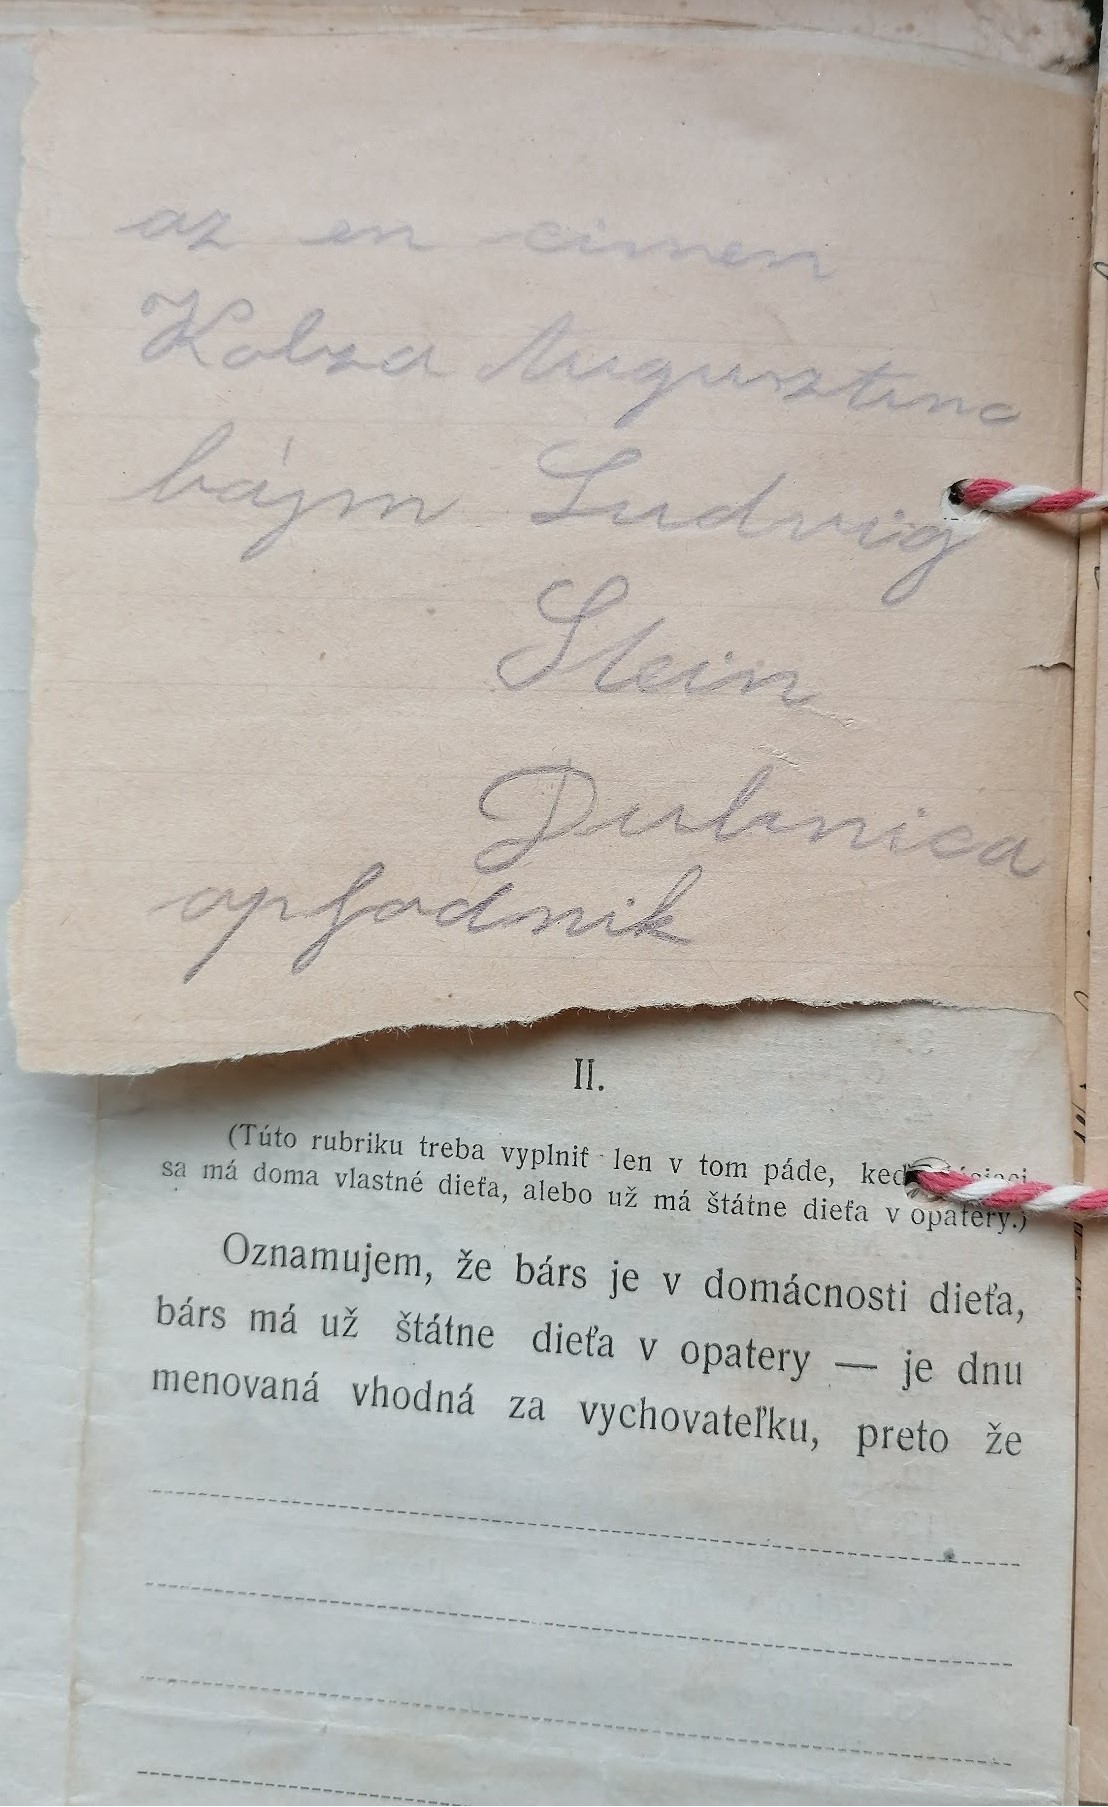 az en cimen
Kobza Augusztina
bájm Ludvig
Stein
Dubnica
opfodnik
II.
(Túto rubriku treba vyplniť len v tom páde, keď
sa má doma vlastné dieťa, alebo už má štátne dieťa v opatery.)
Oznamujem, že bárs je v domácnosti dieťa,
bárs má už štátne dieťa v opatery — je dnu
menovaná vhodná za vychovateľku, preto že